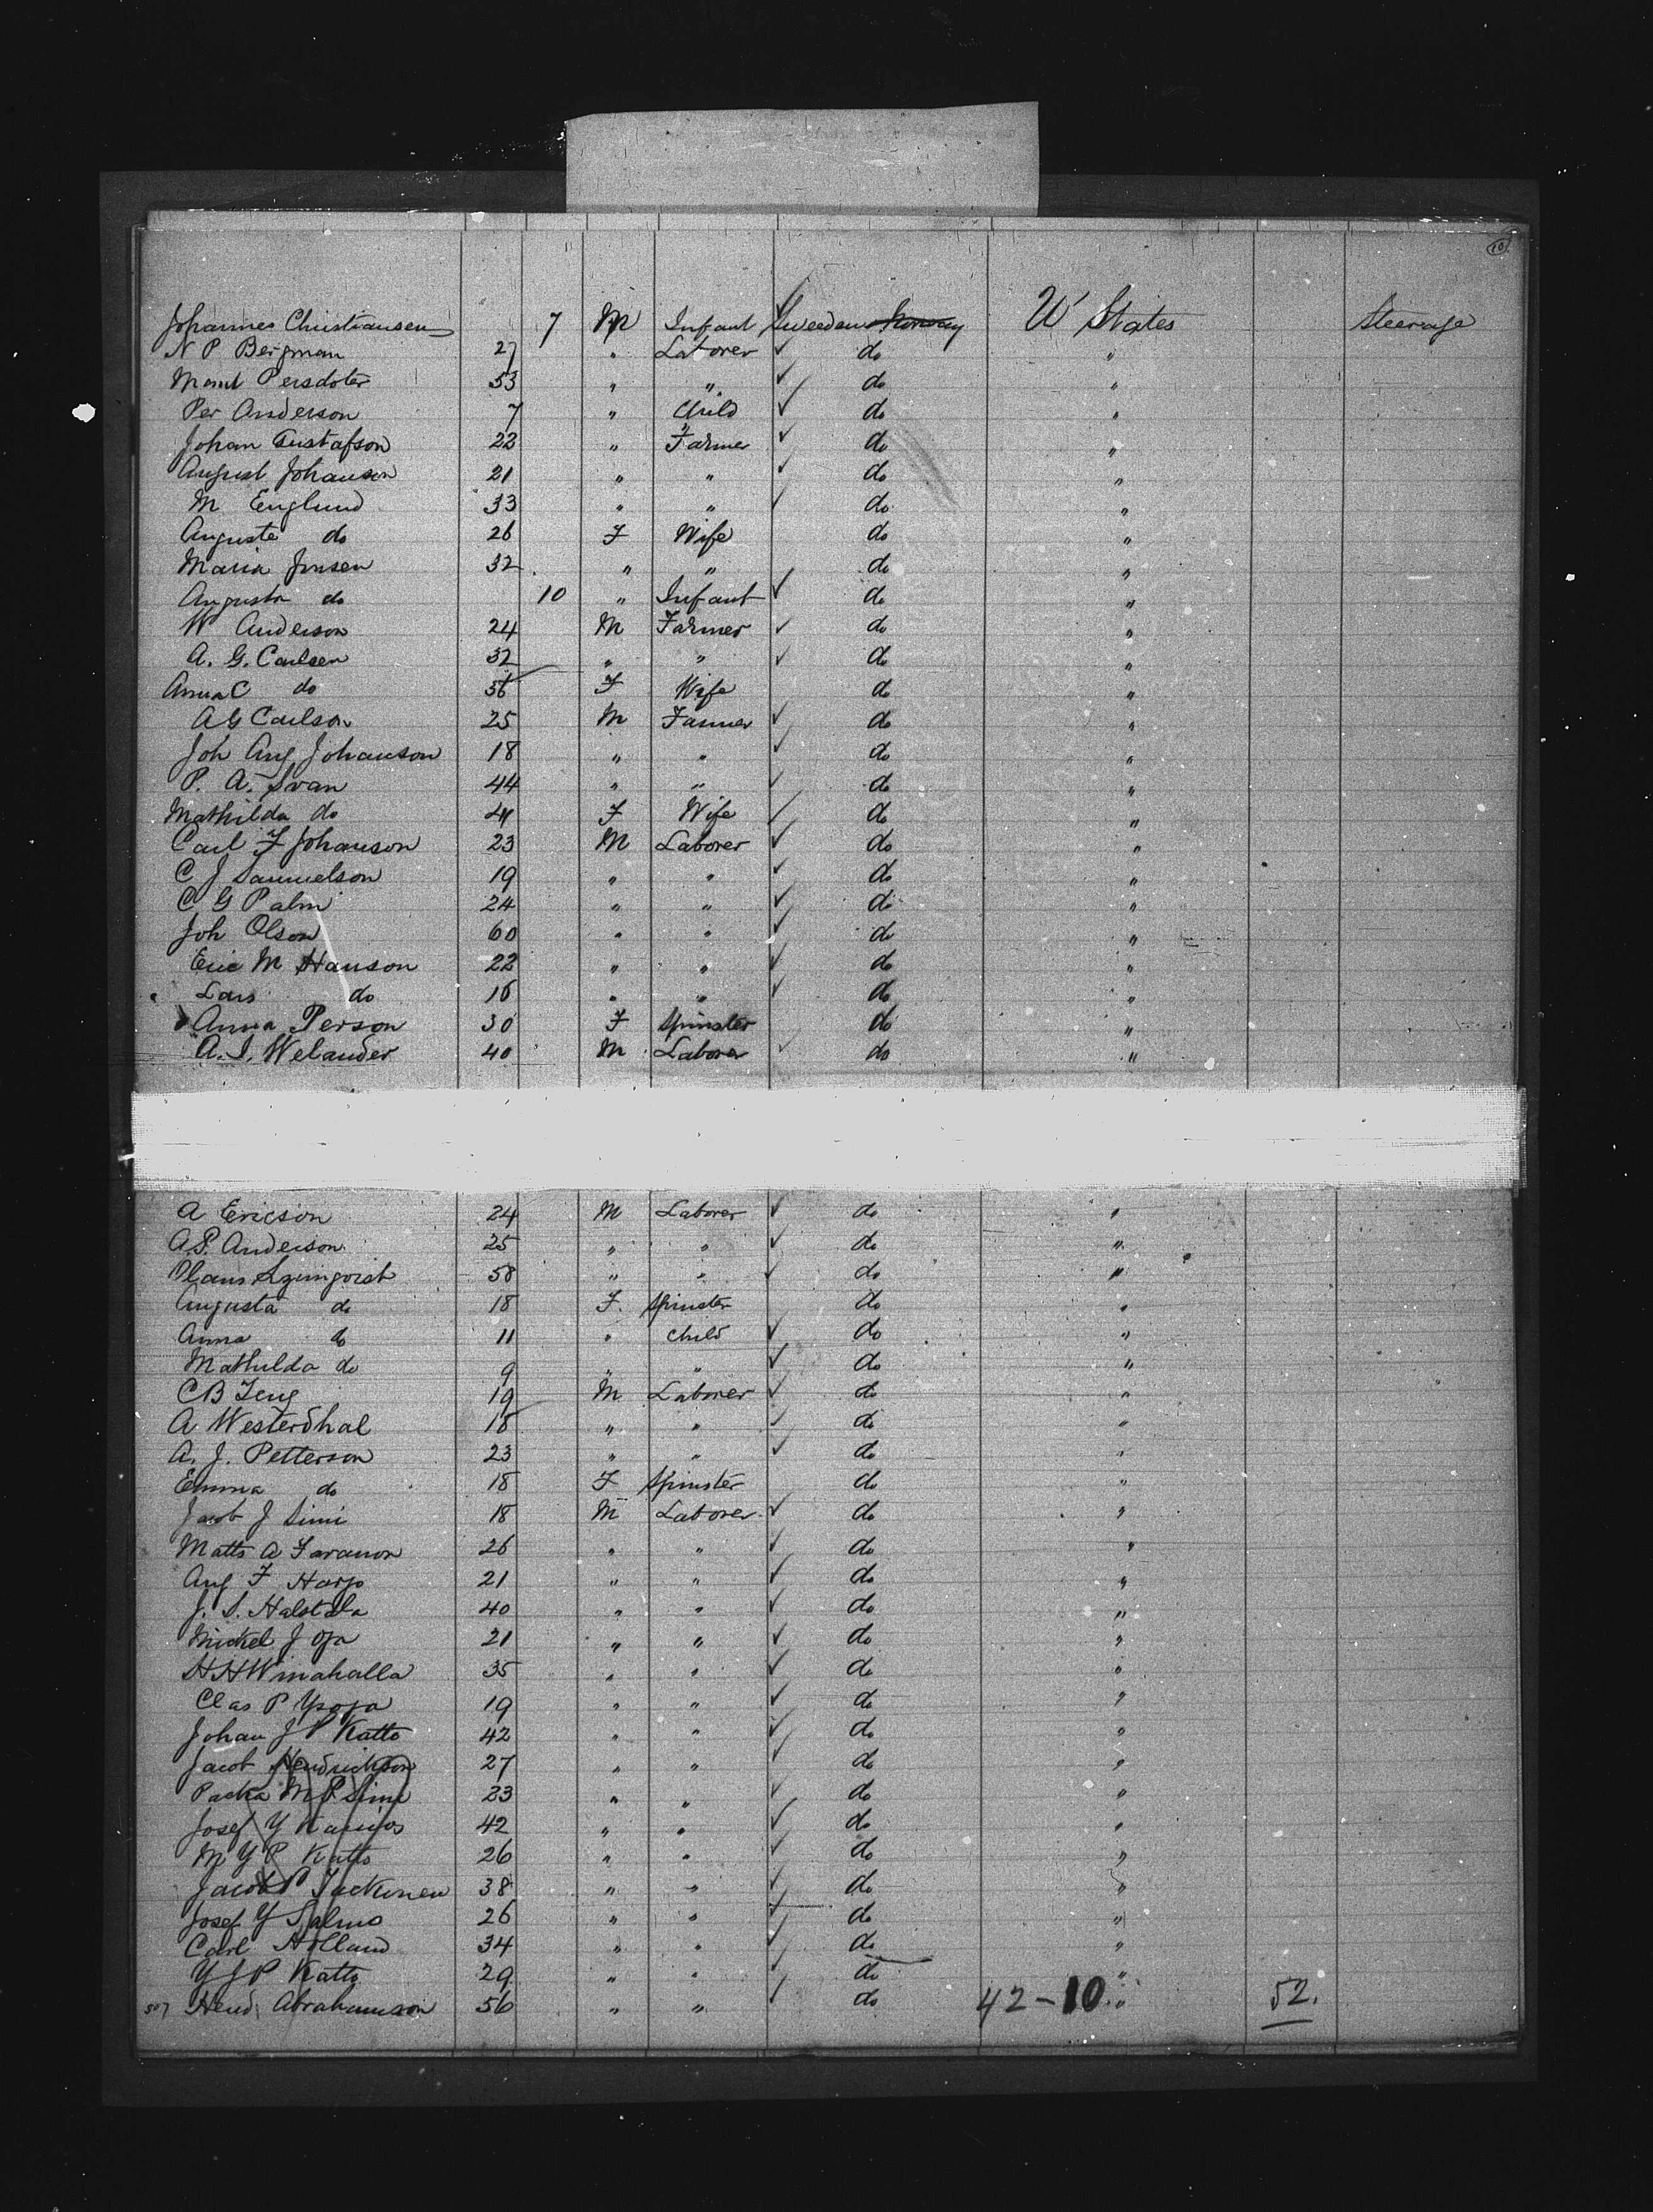 10
Johannes Christiansen 7 M Infant Sweeden Norway U States Steerage
N P Bergman 27 " Laborer do "
Persdoter 53 " " do "
Per Anderson 7 " Child do "
Johan Gustafson 22 " Farmer do "
August Johanson 21 " " do "
M Englund 33 " " do "
Auguste do 26 F Wife do "
Maria Jonsen 32 " " do "
Augusta do 10 " Infant do "
W Anderson 24 M Farmer do "
A. G. Carlsen 32 " " do "
Anna C do 36 F Wife do "
A G Carlson 25 M Farmer do "
Joh Aug Johanson 18 " " do "
P. A. Svan 44 " " do "
Mathilda do 41 F Wife do "
Carl F Johanson 23 M Laborer do "
C J Samuelson 19 " " do "
C G Palm 24 " " do "
Joh Olson 60 " " do "
Eric M Hanson 22 " " do "
Lars do 16 " " do "
Anna Person 30 F Spinster do "
A. I. Welander 40 M Laborer do "
A Ericson 24 M Laborer do "
A. P. Anderson 25 " " do "
58 " " do "
Augusta do 18 F. Spinster do "
Anna do 11 " Child do "
Mathilda do 9 " " do "
C B 19 M Laborer do "
A Westerdhal 18 " " do "
A. J. Petterson 23 " " do "
Emma do 18 F Spinster do "
Jacob J Simi 18 M Laborer do "
Matts A 26 " " do "
Aug F Harjo 21 " " do "
J. S. 40 " " do "
Mickel J Oja 21 " " do "
H H 35 " " do "
Clas P 19 " " do "
Johan J P Katto 42 " " do "
Jacob Hendrickson 27 " " do "
M P Simi 23 " " do "
Josef Y 42 " " do "
M Y P Katto 26 " " do "
Jacob P 38 " " do "
Josef Y Salmo 26 " " do "
Carl Holland 34 " " do "
Y J P Katto 29 " " do "
507 Hend. Abrahamson 56 " " do 42-10 " 52.